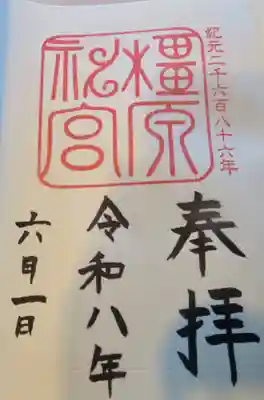 紀元二千六百八十六年
奉拝
橿原神宮
令和八年
六月一日